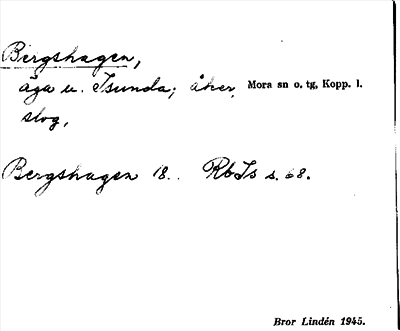 Bergshagen,
äga u. Isunda; åker, Mora sn o. tg, Kopp. l.
slog,
Bergshagen 18.. RbIs s. 68.
Bror Lindén 1945.